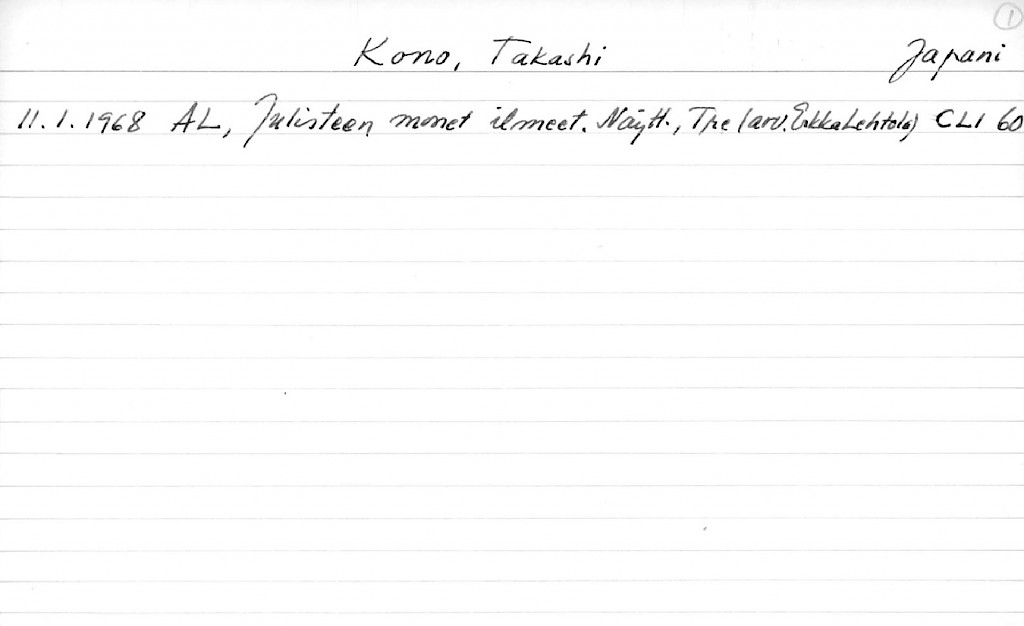 1
Kono, Takashi Japani
11.1.1968 AL, Julisteen monet ilmeet. Näytt., Tre (arv. Erkka Lehtola) CLI 60